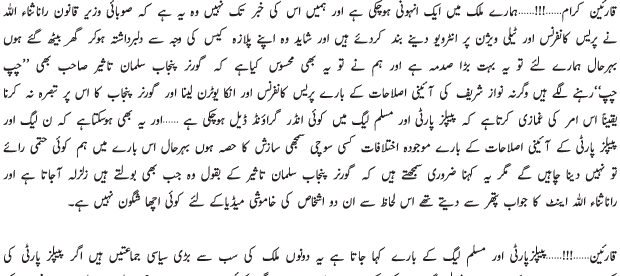 قارئین کرام……!!!……ہمارے ملک میں ایک انہونی ہوچکی ہے اور ہمیں اس کی خبر تک نہیں وہ یہ ہے کہ صوبائی وزیر قانون رانا ثناء اللہ
نے پریس کانفرنس اور ٹیلی ویژن پر انٹرویو دینے بند کردئیے ہیں اور شاید وہ اپنے پلازہ کیس کی وجہ سے دلبرداشتہ ہوکر گھر بیٹھ گئے ہوں
بہرحال ہمارے لئے تو یہ بہت بڑا صدمہ ہے اور ہم نے تو یہ بھی محسوس کیاہے کہ گورنر پنجاب سلمان تاثیر صاحب بھی ”چپ
چپ“رہنے لگے ہیں وگرنہ نواز شریف کی آئینی اصلاحات کے بارے پریس کانفرنس اور انکا یوٹرن لینا اور گورنر پنجاب کا اس پر تبصرہ نہ کرنا
یقیناً اس امر کی غمازی کرتاہے کہ پیپلز پارٹی اور مسلم لیگ میں کوئی انڈر گراؤنڈ ڈیل ہوچکی ہے ……اور یہ بھی ہوسکتاہے کہ ن لیگ اور
پیپلز پارٹی کے آئینی اصلاحات کے بارے موجودہ اختلافات کسی سوچی سمجھی سازش کا حصہ ہوں بہرحال اس بارے میں ہم کوئی حتمی رائے
تو نہیں دینا چاہیں گے مگر یہ کہنا ضروری سمجھتے ہیں کہ گورنر پنجاب سلمان تاثیر کے بقول وہ جب بھی بولتے ہیں زلزلہ آجاتا ہے اور
راناثناء اللہ اینٹ کا جواب پتھر سے دیتے تھے اس لحاظ سے ان دو اشخاص کی خاموشی میڈیاکے لئے کوئی اچھا شگون نہیں ہے۔
قارئین……!!!……پیپلزپارٹی اور مسلم لیگ کے بارے کہا جاتا ہے یہ دونوں ملک کی سب سے بڑی سیاسی جماعتیں ہیں اگر پیپلز پارٹی کی